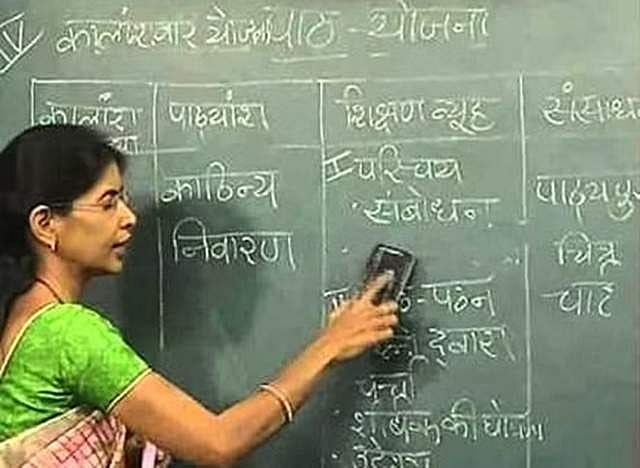 IV कालांशवार योजना पाठ - योजना
कालांश पाठ्यांश शिक्षण व्यूह
काठिन्य
निवारण
I परिचय
संबोधन
पठन
द्वारा
की घोषणा
पाठ्य
चित्र
चार्ट